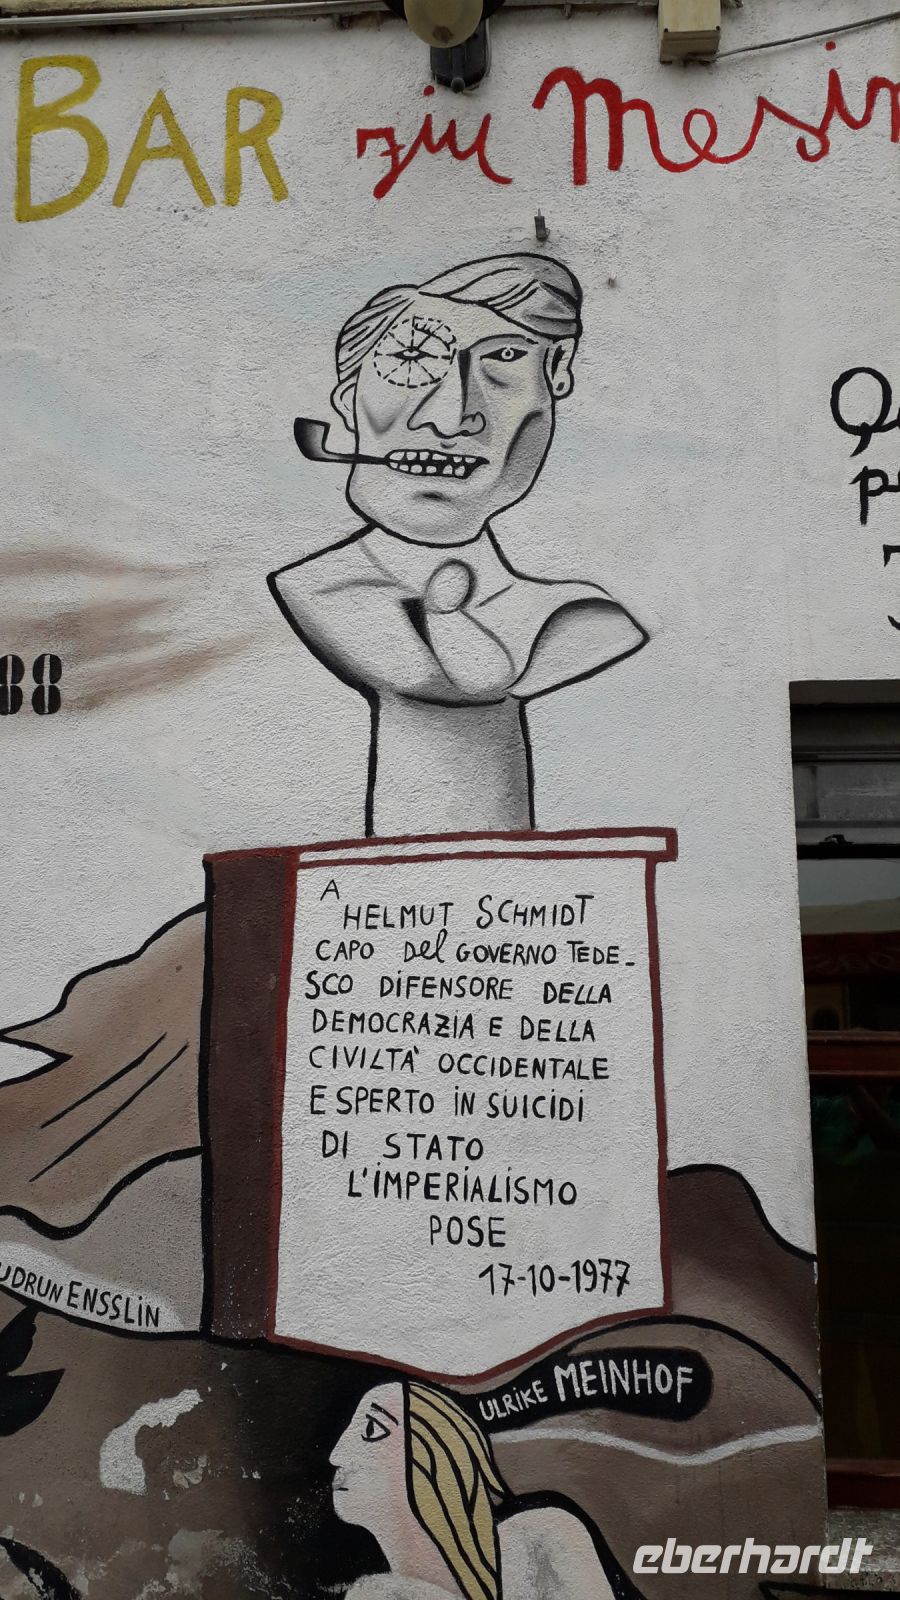 BAR ziu Mesin
88
A
HELMUT SCHMIDT
CAPO DEl GOVERNO TEDE-
SCO DIFENSORE DELLA
DEMOCRAZIA E DELLA
CIVILTA' OCCIDENTALE
ESPERTO IN SUICIDI
DI STATO
L'IMPERIALISMO
POSE
17-10-1977
UDRUN ENSSLIN
ULRIKE MEINHOF
eberhardt